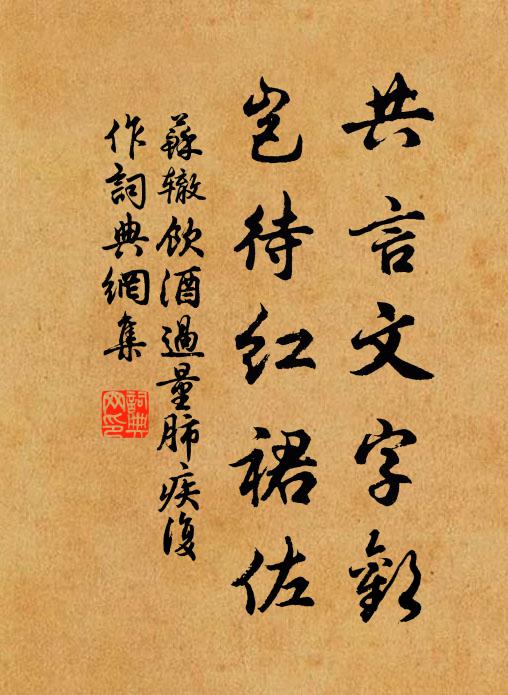 共言文字歡
豈待紅裙佐
蘇轍飲酒過量肺疾復
作詞典網集
詞典
网印